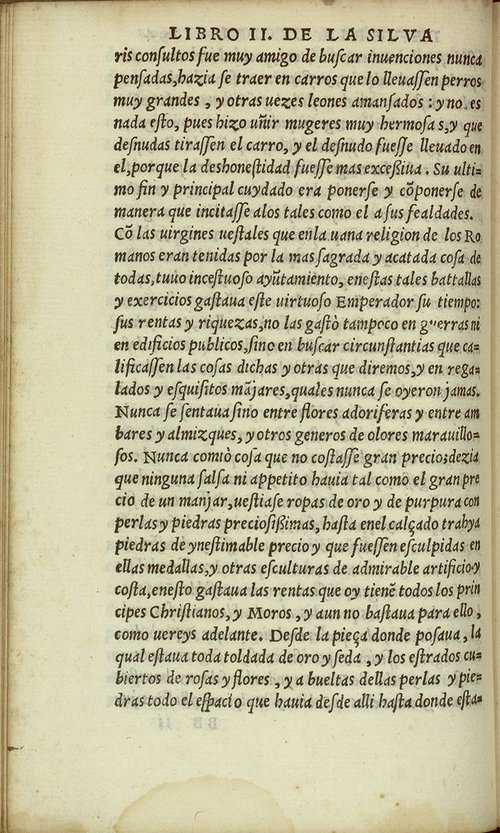 LIBRO II. DE LA SILVA
ris consultos fue muy amigo de buscar inuenciones nunca
pensadas,hazia se traer en carros que lo lleuassen perros
muy grandes , y otras uezes leones amansados : y no es
nada esto, pues hizo uñir mugeres muy hermosas,y que
desnudas tirassen el carro, y el desnudo fuesse lleuado en
el,porque la deshonestidad fuesse mas excessiua . Su ulti-
mo fin y principal cuydado era ponerse y cõponerse de
manera que incitasse alos tales como el a sus fealdades.
Cõ las uirgines uestales que enla uana religion de los Ro
manos eran tenidas por la mas sagrada y acatada cosa de
todas,tuuo incestuoso ayũtamiento, enestas tales battallas
y exercicios gastaua este uirtuoso Emperador su tiempo:
sus rentas y riquezas,no las gastò tampoco en guerras ni
en edificios publicos,sino en buscar circunstantias que ca-
lificassen las cosas dichas y otras que diremos,y en rega-
lados y esquisitos mãjares,quales nunca se oyeron jamas.
Nunca se sentaua sino entre flores adoriferas y entre am
bares y almizques, y otros generos de olores marauillo-
sos. Nunca comiò cosa que no costasse gran precio;dezia
que ninguna salsa ni appetito hauia tal como el gran pre
cio de un manjar,uestiase ropas de oro y de purpura con
perlas y piedras preciosissimas, hasta enel calçado trahya
piedras de ynestimable precio y que fuessen esculpidas en
ellas medallas,y otras esculturas de admirable artificio y
costa,enesto gastaua las rentas que oy tienẽ todos los prin
cipes Christianos, y Moros , y aun no bastaua para ello ,
como uereys adelante. Desde la pieça donde posaua , la
qual estaua toda toldada de oro y seda , y los estrados cu-
biertos de rosas y flores , y a bueltas dellas perlas y pie-
dras todo el espacio que hauia desde alli hasta donde esta-